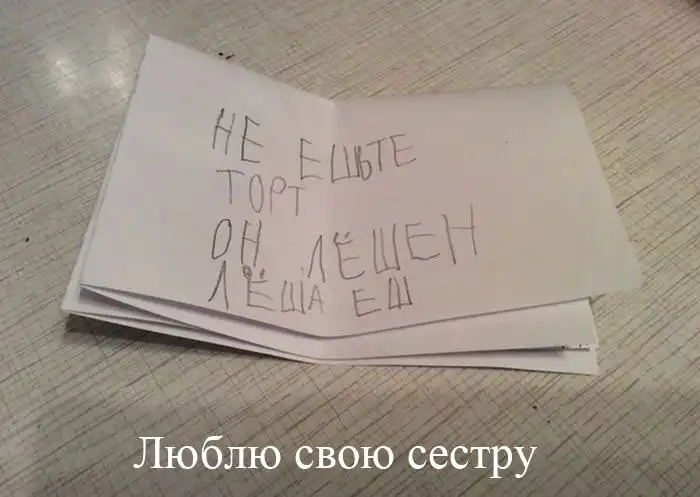 НЕ ЕШЬТЕ
ТОРТ
ОН ЛЁШЕН
ЛЁША ЕШ
Люблю свою сестру